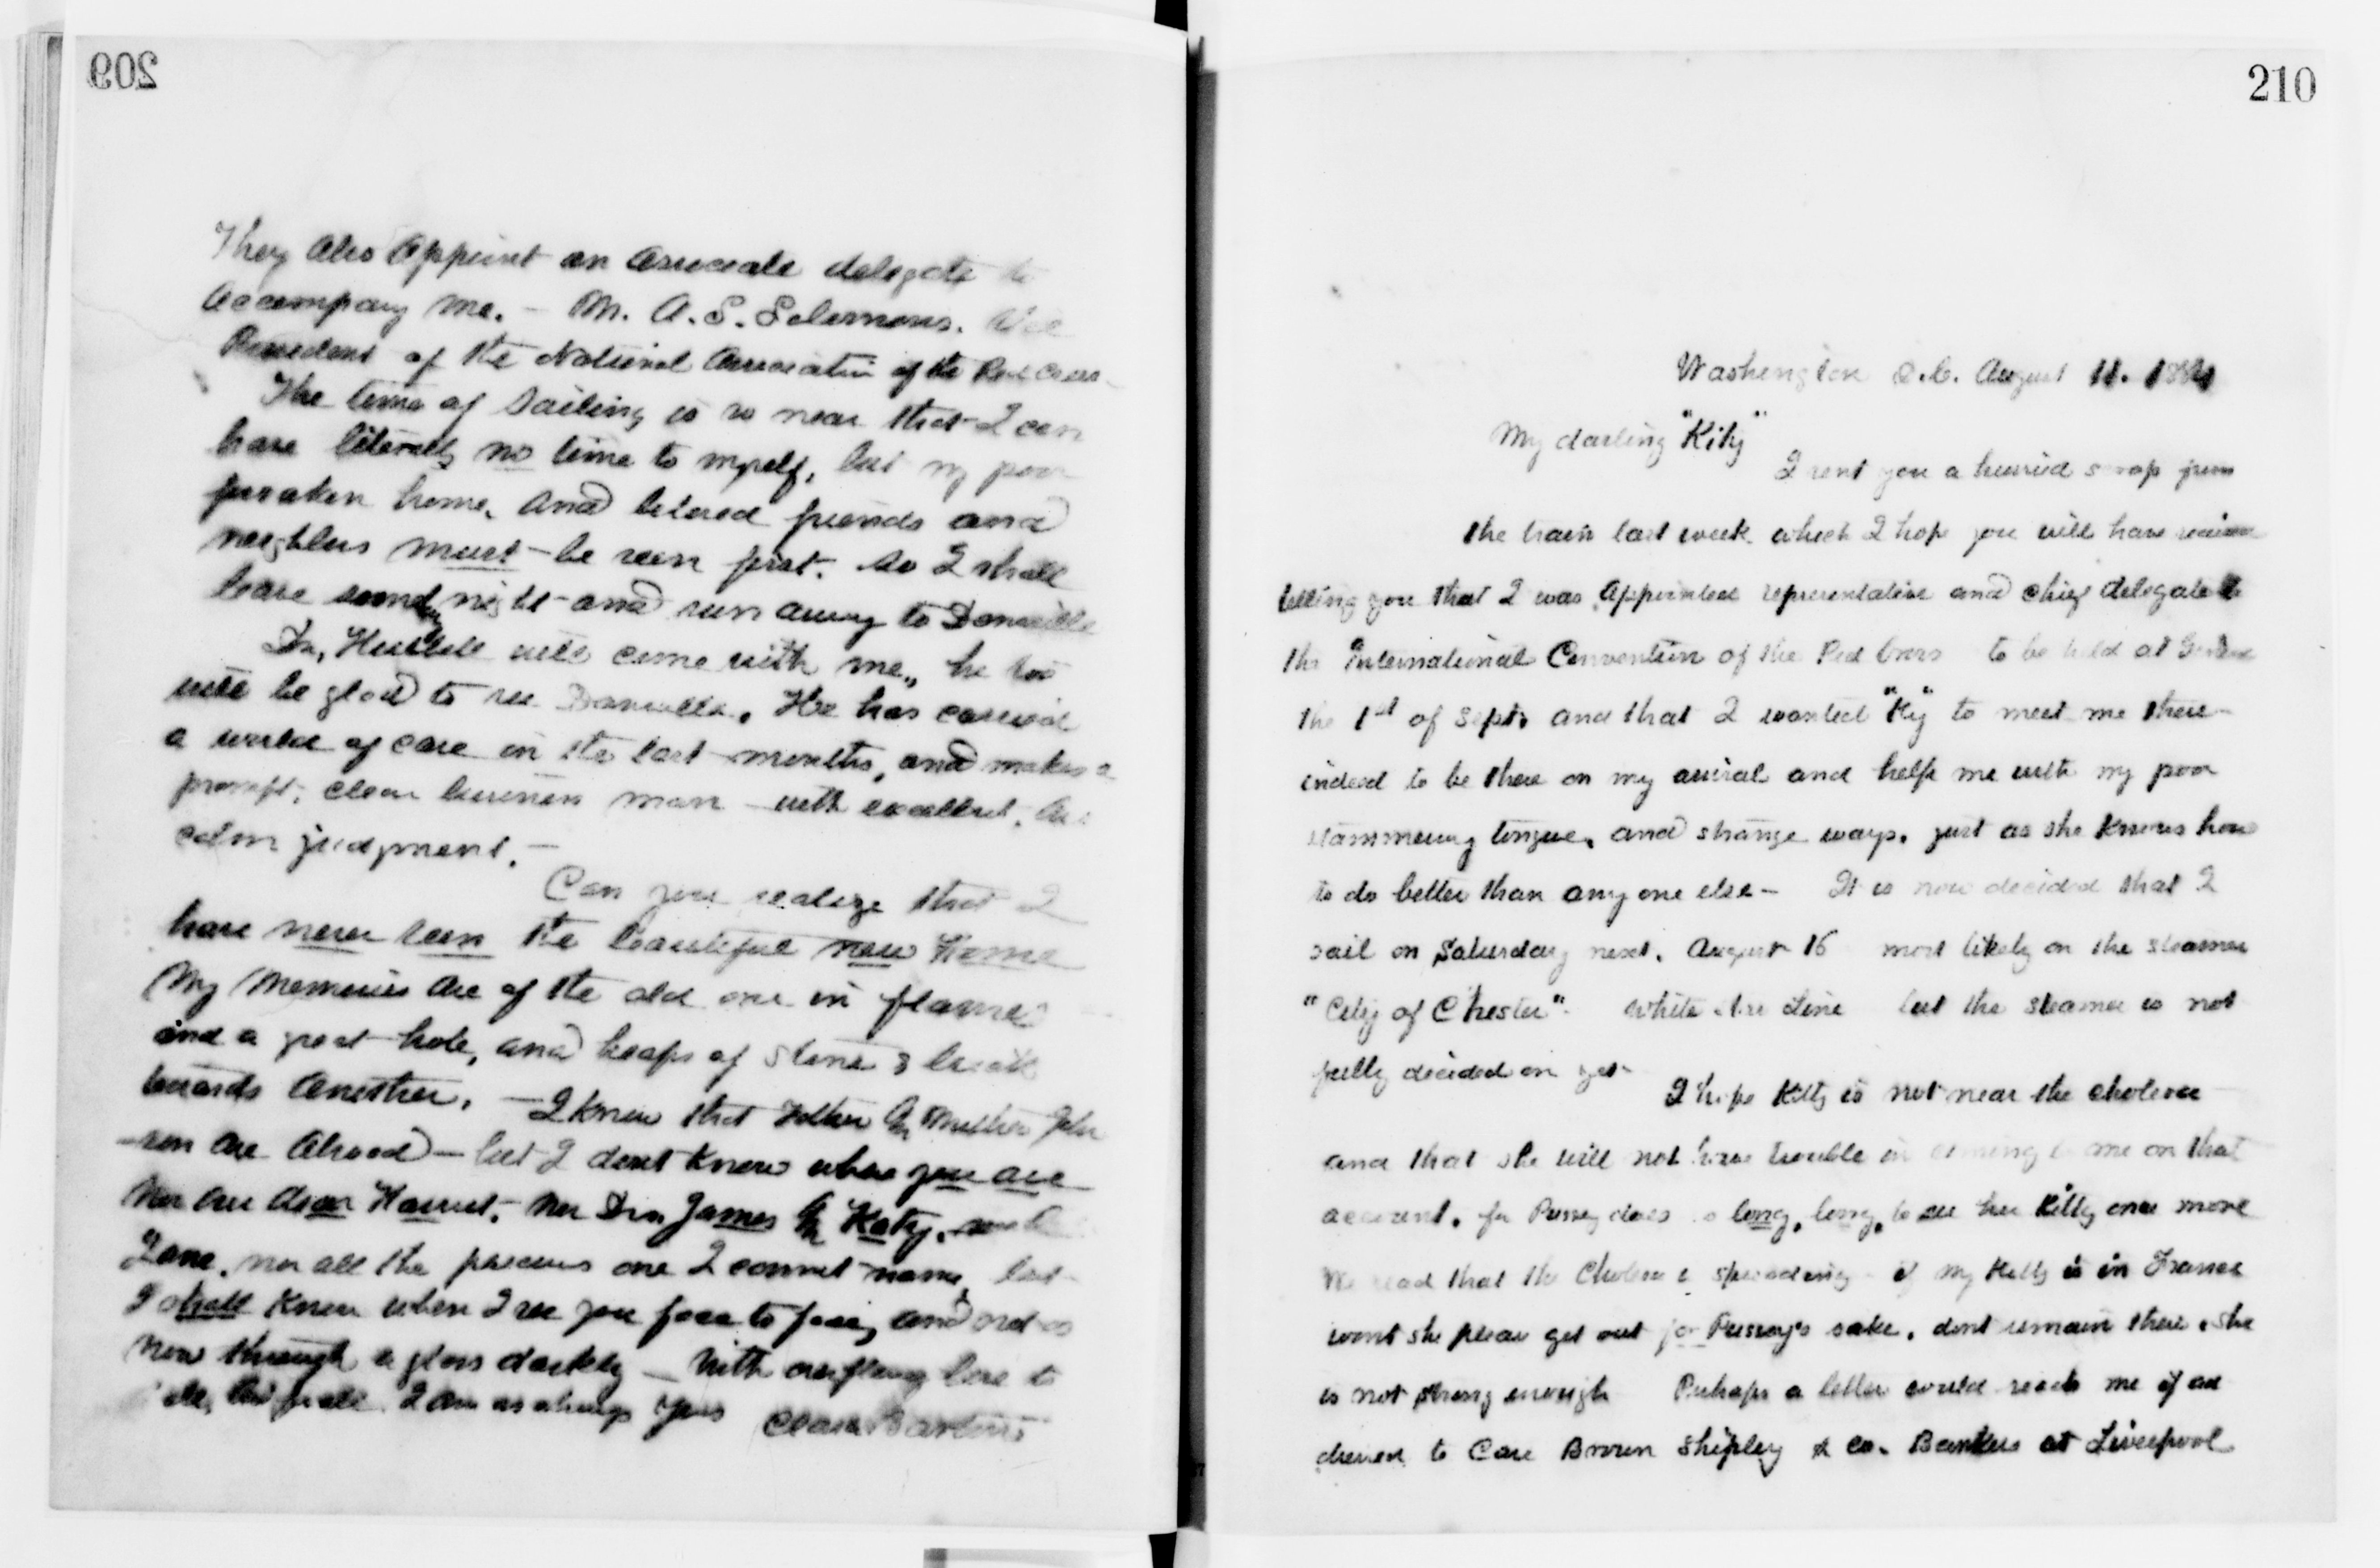 209
They also appoint an associate delegate to
accompany me. - M. A. S. Solomons. Vice
President of the National Association of the Red Cross -
The time of sailing is so near that I can
have literally no time to myself, but my poor
forsaken home, and beloved friends and
neighbors must - be seen first. So I shall
leave sunday night - and run away to Dansville
Dr. Hubbell will come with me, he too
will be glad to see Dansville. He has carried
a world of care in the last months, and makes a
prompt, clear business man - with excellent,
calm judgment. -
Can you realize that I
have never seen the beautiful new Home
My memories are of the old one in flames
and a great hole, and heaps of stone & brick
towards another. - I know that Father & Mother John
- son are abroad - but I dont know where you are
nor our dear Harriet, - nor Drs James & Katy,
Jane, nor all the precious one I cannot name, but
I shall know when I see you face to face, and not as
now through a glass darkly - With overflowing love to
I am as always yours Clara Barton
210
Washington D.C. August 11. 1884
My darling "Kitty"
I sent you a hurried scrap from
the train last week which I hope you will have received
telling you that I was appointed representative and chief delegate to
the International Convention of the Red Cross to be held at Geneva
the 1st of Sept. and that I wanted "Ky" to meet me there -
indeed to be there on my arrival and help me with my poor
stammering tongue, and strange ways, just as she knows how
to do better than any one else - It is now decided that I
sail on Saturday next. August 16 most likely on the steamer
"City of Chester". White Star Line but the steamer is not
fully decided on yet -
I hope Kitty is not near the cholera
and that she will not have trouble in coming to me on that
account, for Pussy does so long, long, to see her Kitty once more
We read that the Cholera is spreading - if my Kitty is in France
wont she please get out for Pussy's sake. dont remain there, she
is not strong enough Perhaps a letter would reach me if ad
dressed to Care Brown Shipley & Co. Bankers at Liverpool